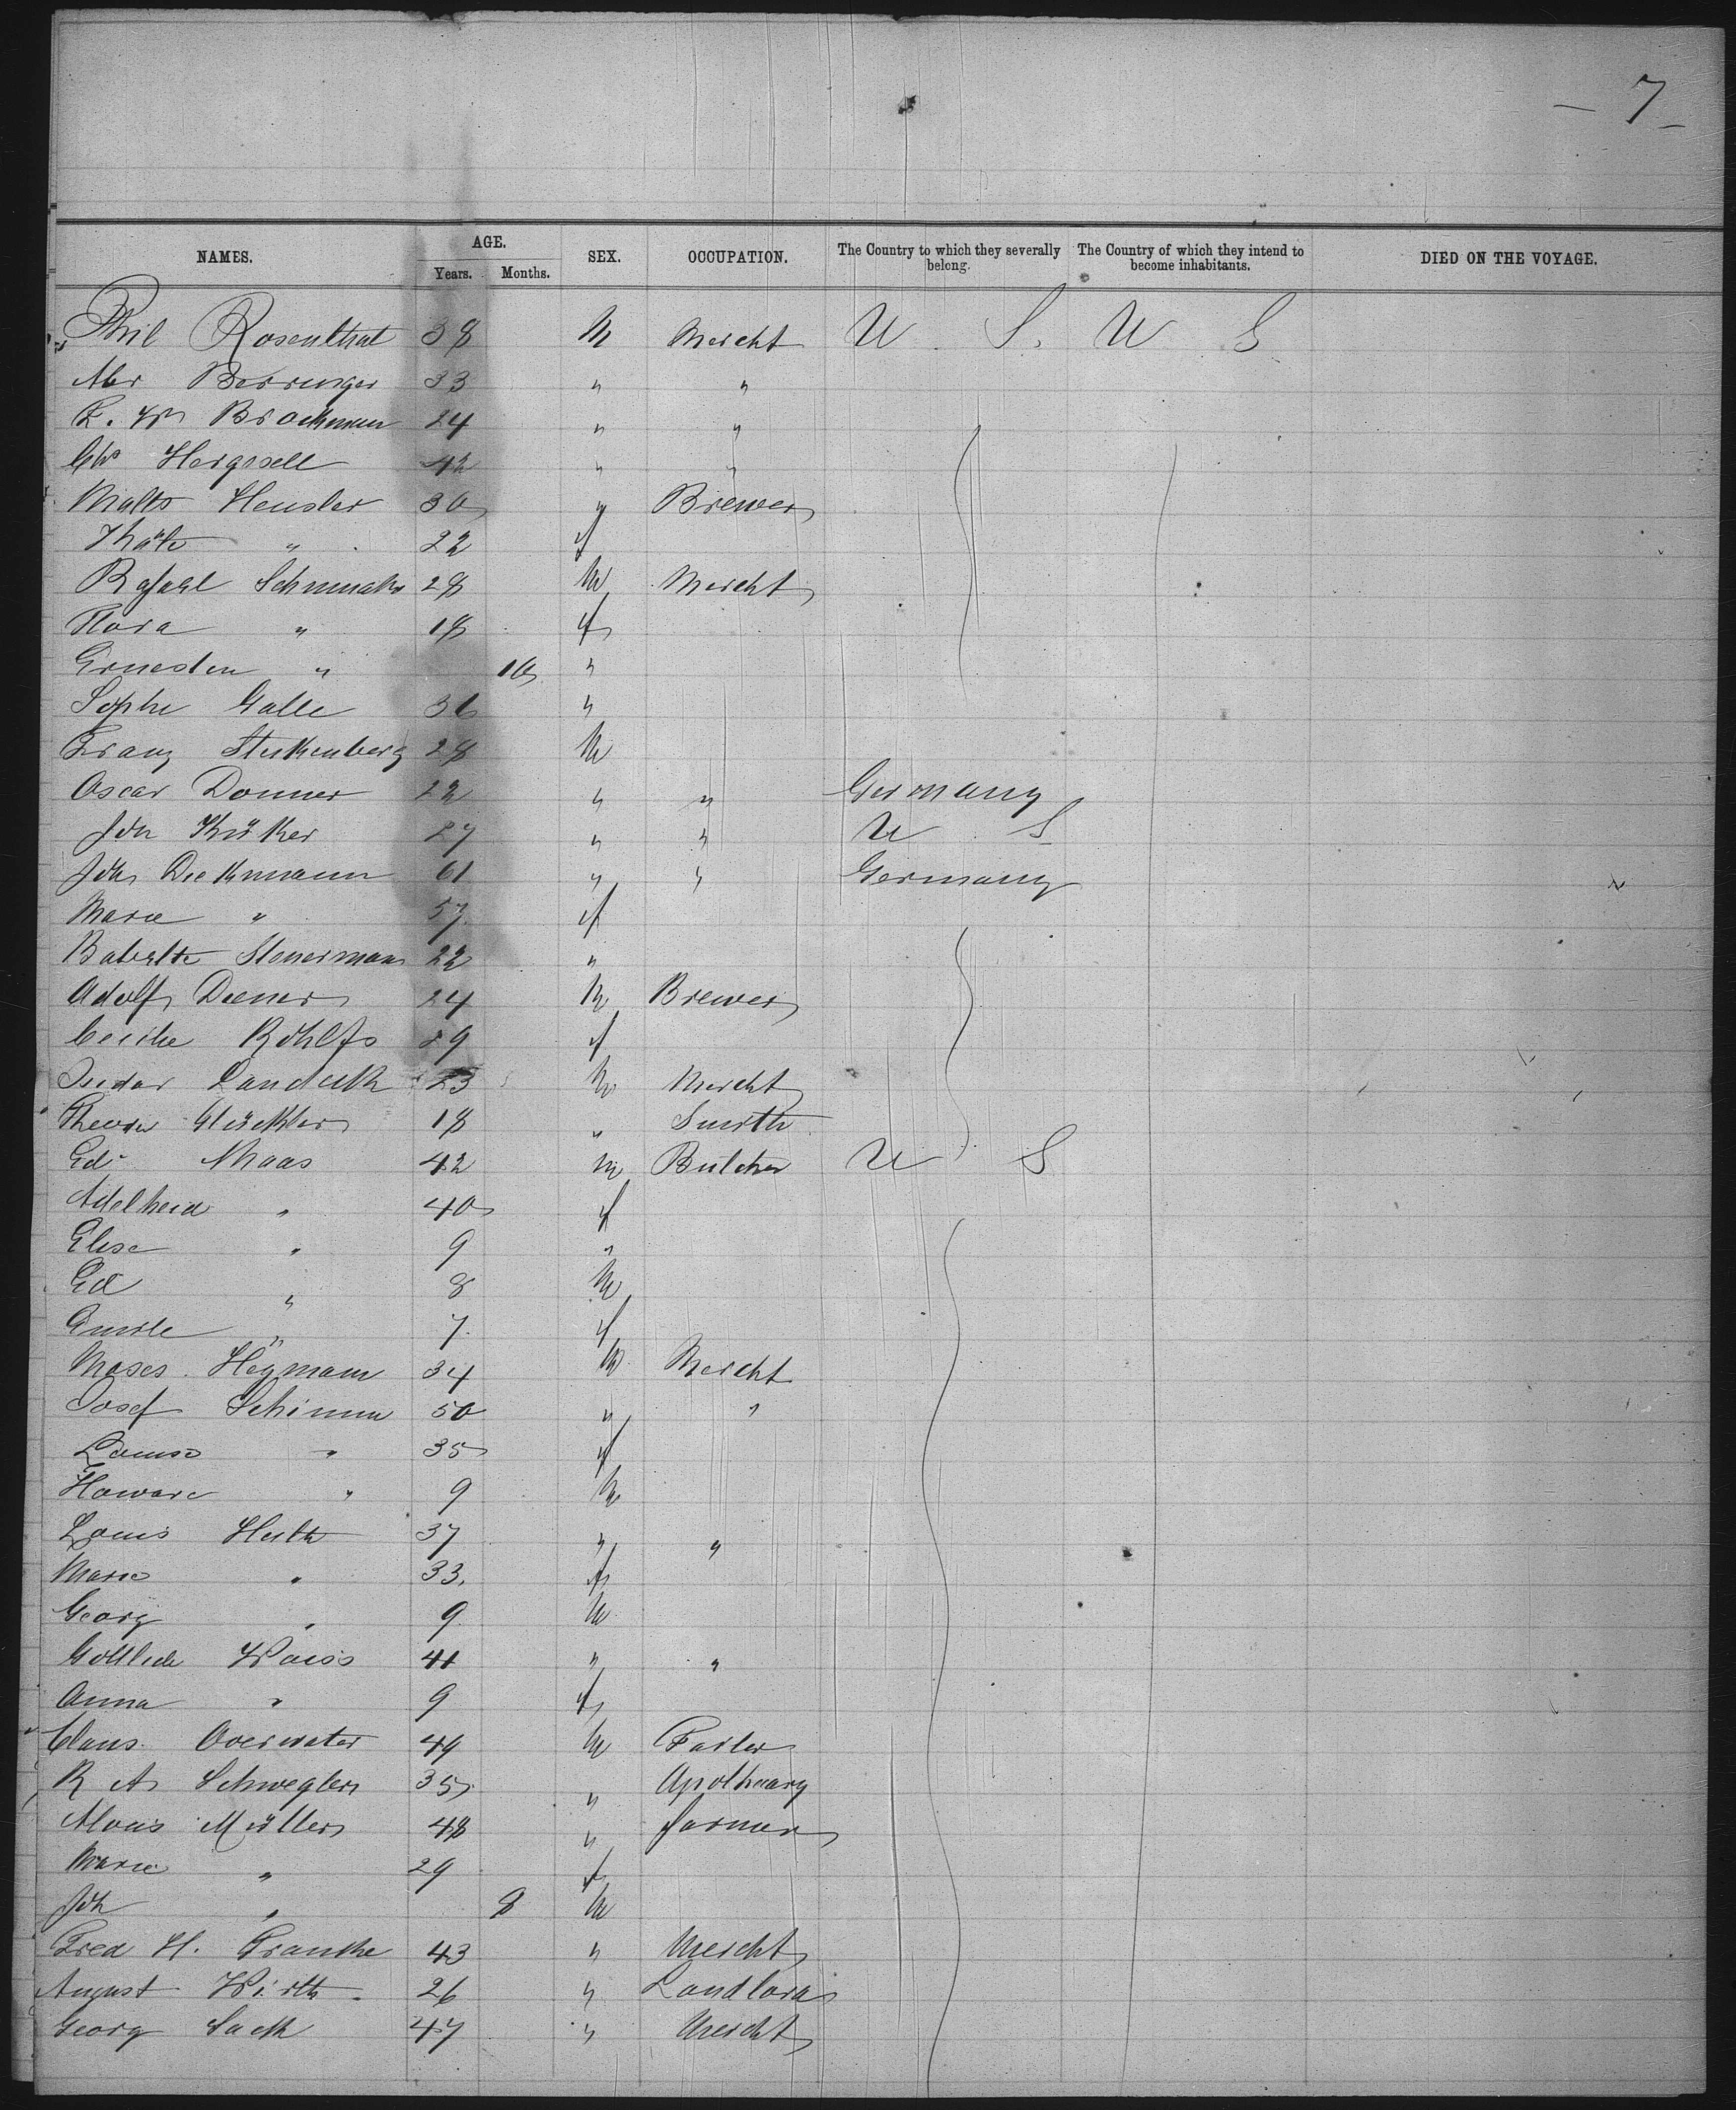 — 7 —
NAMES. AGE. SEX. OCCUPATION. The Country to which they severally belong. The Country of which they intend to become inhabitants. DIED ON THE VOYAGE.
Years. Months.
Phil Rosenthal 38 M Mercht U S. U S
Abr Berringer 33 " "
F. W Brockman 24 " "
Chs Hergesell 42 " "
Malts Hensler 30 " Brewer
Käte " 22 f
Rafael Schumaker 28 M Mercht
Flora " 18 f
Ernestin " 10 "
Sophi Galle 36 "
Franz Stukenberg 28 M
Oscar Donner 22 " " Germany
Joh Küker 27 " " U S
Joh Diekmann 61 " " Germany
Marie " 57 f
Babette Steuerman 22 "
Adolf Diener 24 M Brewer
Cecilie Rohlfs 29 f
Isidor Landeck 23 M Mercht
Theodor Glückler 18 " Smith
Ed Maas 42 M Butcher U S
Adelheid " 40 f
Elise " 9 "
Ed " 8 M
Emile " 7 f
Moses Heymann 34 M Mercht
Josef Schimm 50 " "
Louise " 35 f
Howard " 9 M
Louis Huth 37 " "
Marie " 33. f
Georg " 9 M
Gottlieb Weiss 41 " "
Anna " 9 f
Claus Overwater 49 M
R A Schwegler 35 " Apothecary
Alous Müller 48 " farmer
Marie " 29 f
Joh " 8 M
Fred H. Franke 43 " Mercht
August Wirth 26 " Landlord
Georg Sack 47 " Mercht